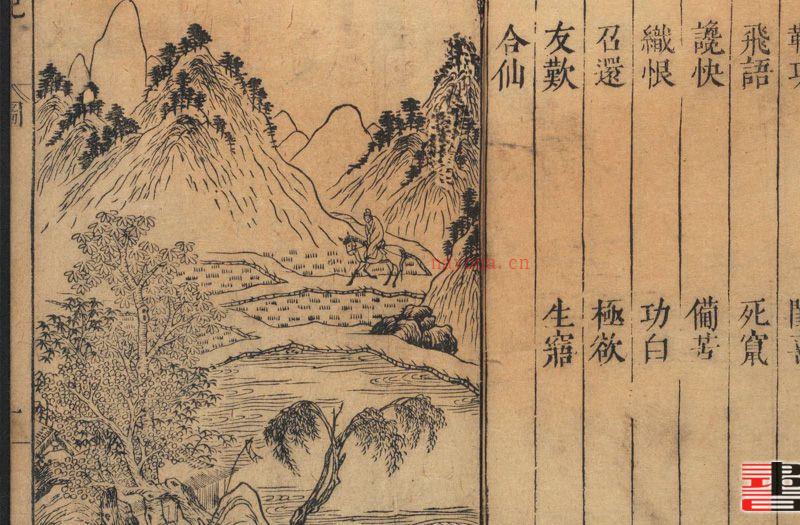 飛語
死竄
讒快
備苦
織恨
功白
召還
極欲
友歎
生寤
合仙
圖
一